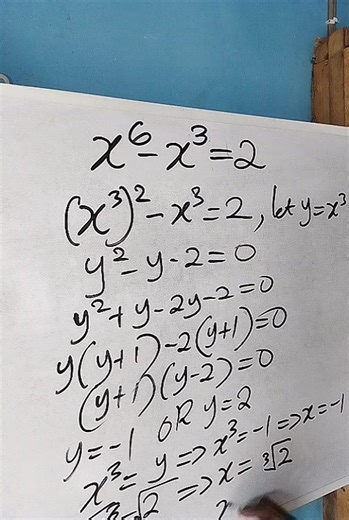 x⁶ - x³ = 2
(x³)² - x³ = 2, let y = x³
y² - y - 2 = 0
y² + y - 2y - 2 = 0
y(y+1) - 2(y+1) = 0
(y+1)(y-2) = 0
y = -1 OR y = 2
x³ = y => x³ = -1 => x = -1
=> x = ∛2